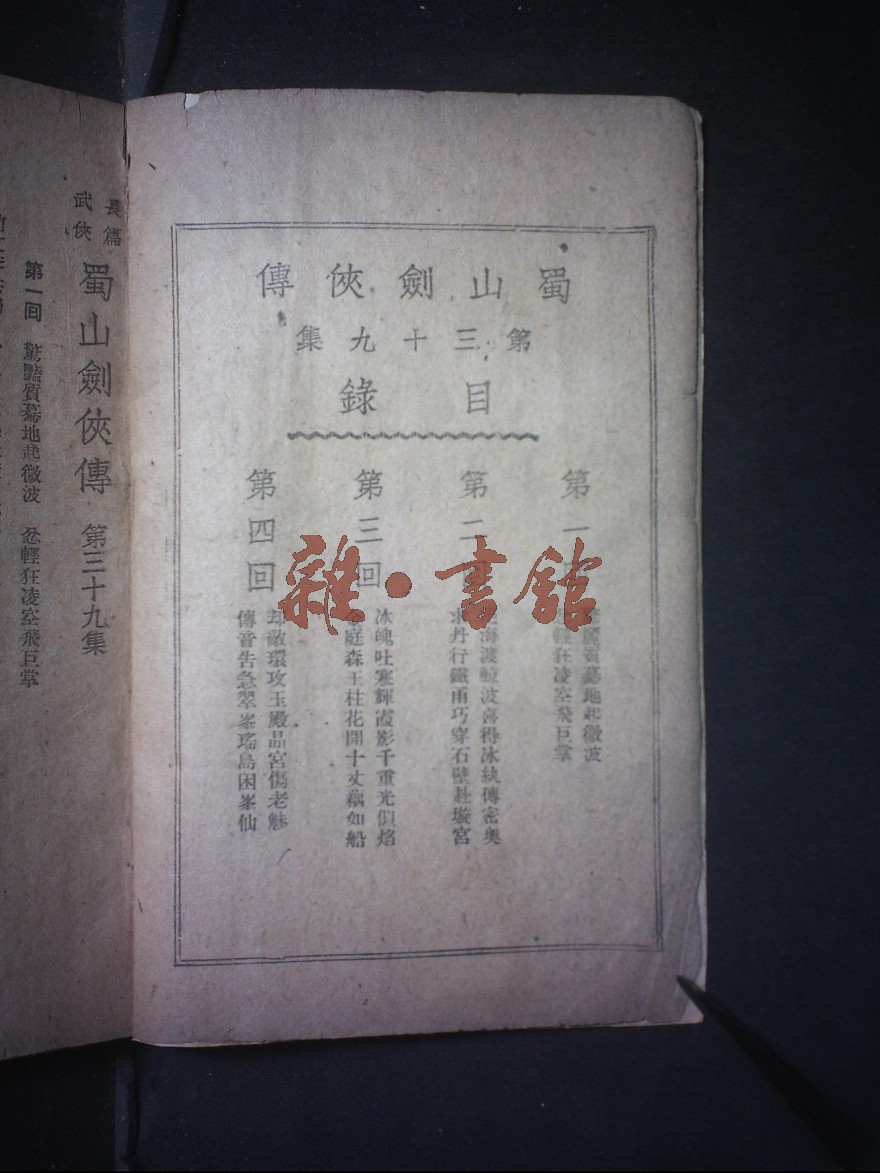 蜀山劍俠傳
第三十九集
目錄
第一
地起微波
輕狂凌空飛巨掌
第二
海渡鯨波喜得冰紈傳密奧
求丹行鐵甬巧穿石壁赴璇宮
第三回
冰魄吐寒輝霞影千重光似焰
庭森玉柱花開十丈藕如船
第四回
却敵環攻玉殿晶宮傷老魅
傳音告急翠峯瑤島困峯仙
長篇
武俠
蜀山劍俠傳 第三十九集
第一回 驚豔質驀地起微波 忿輕狂凌空飛巨掌
雜·書館